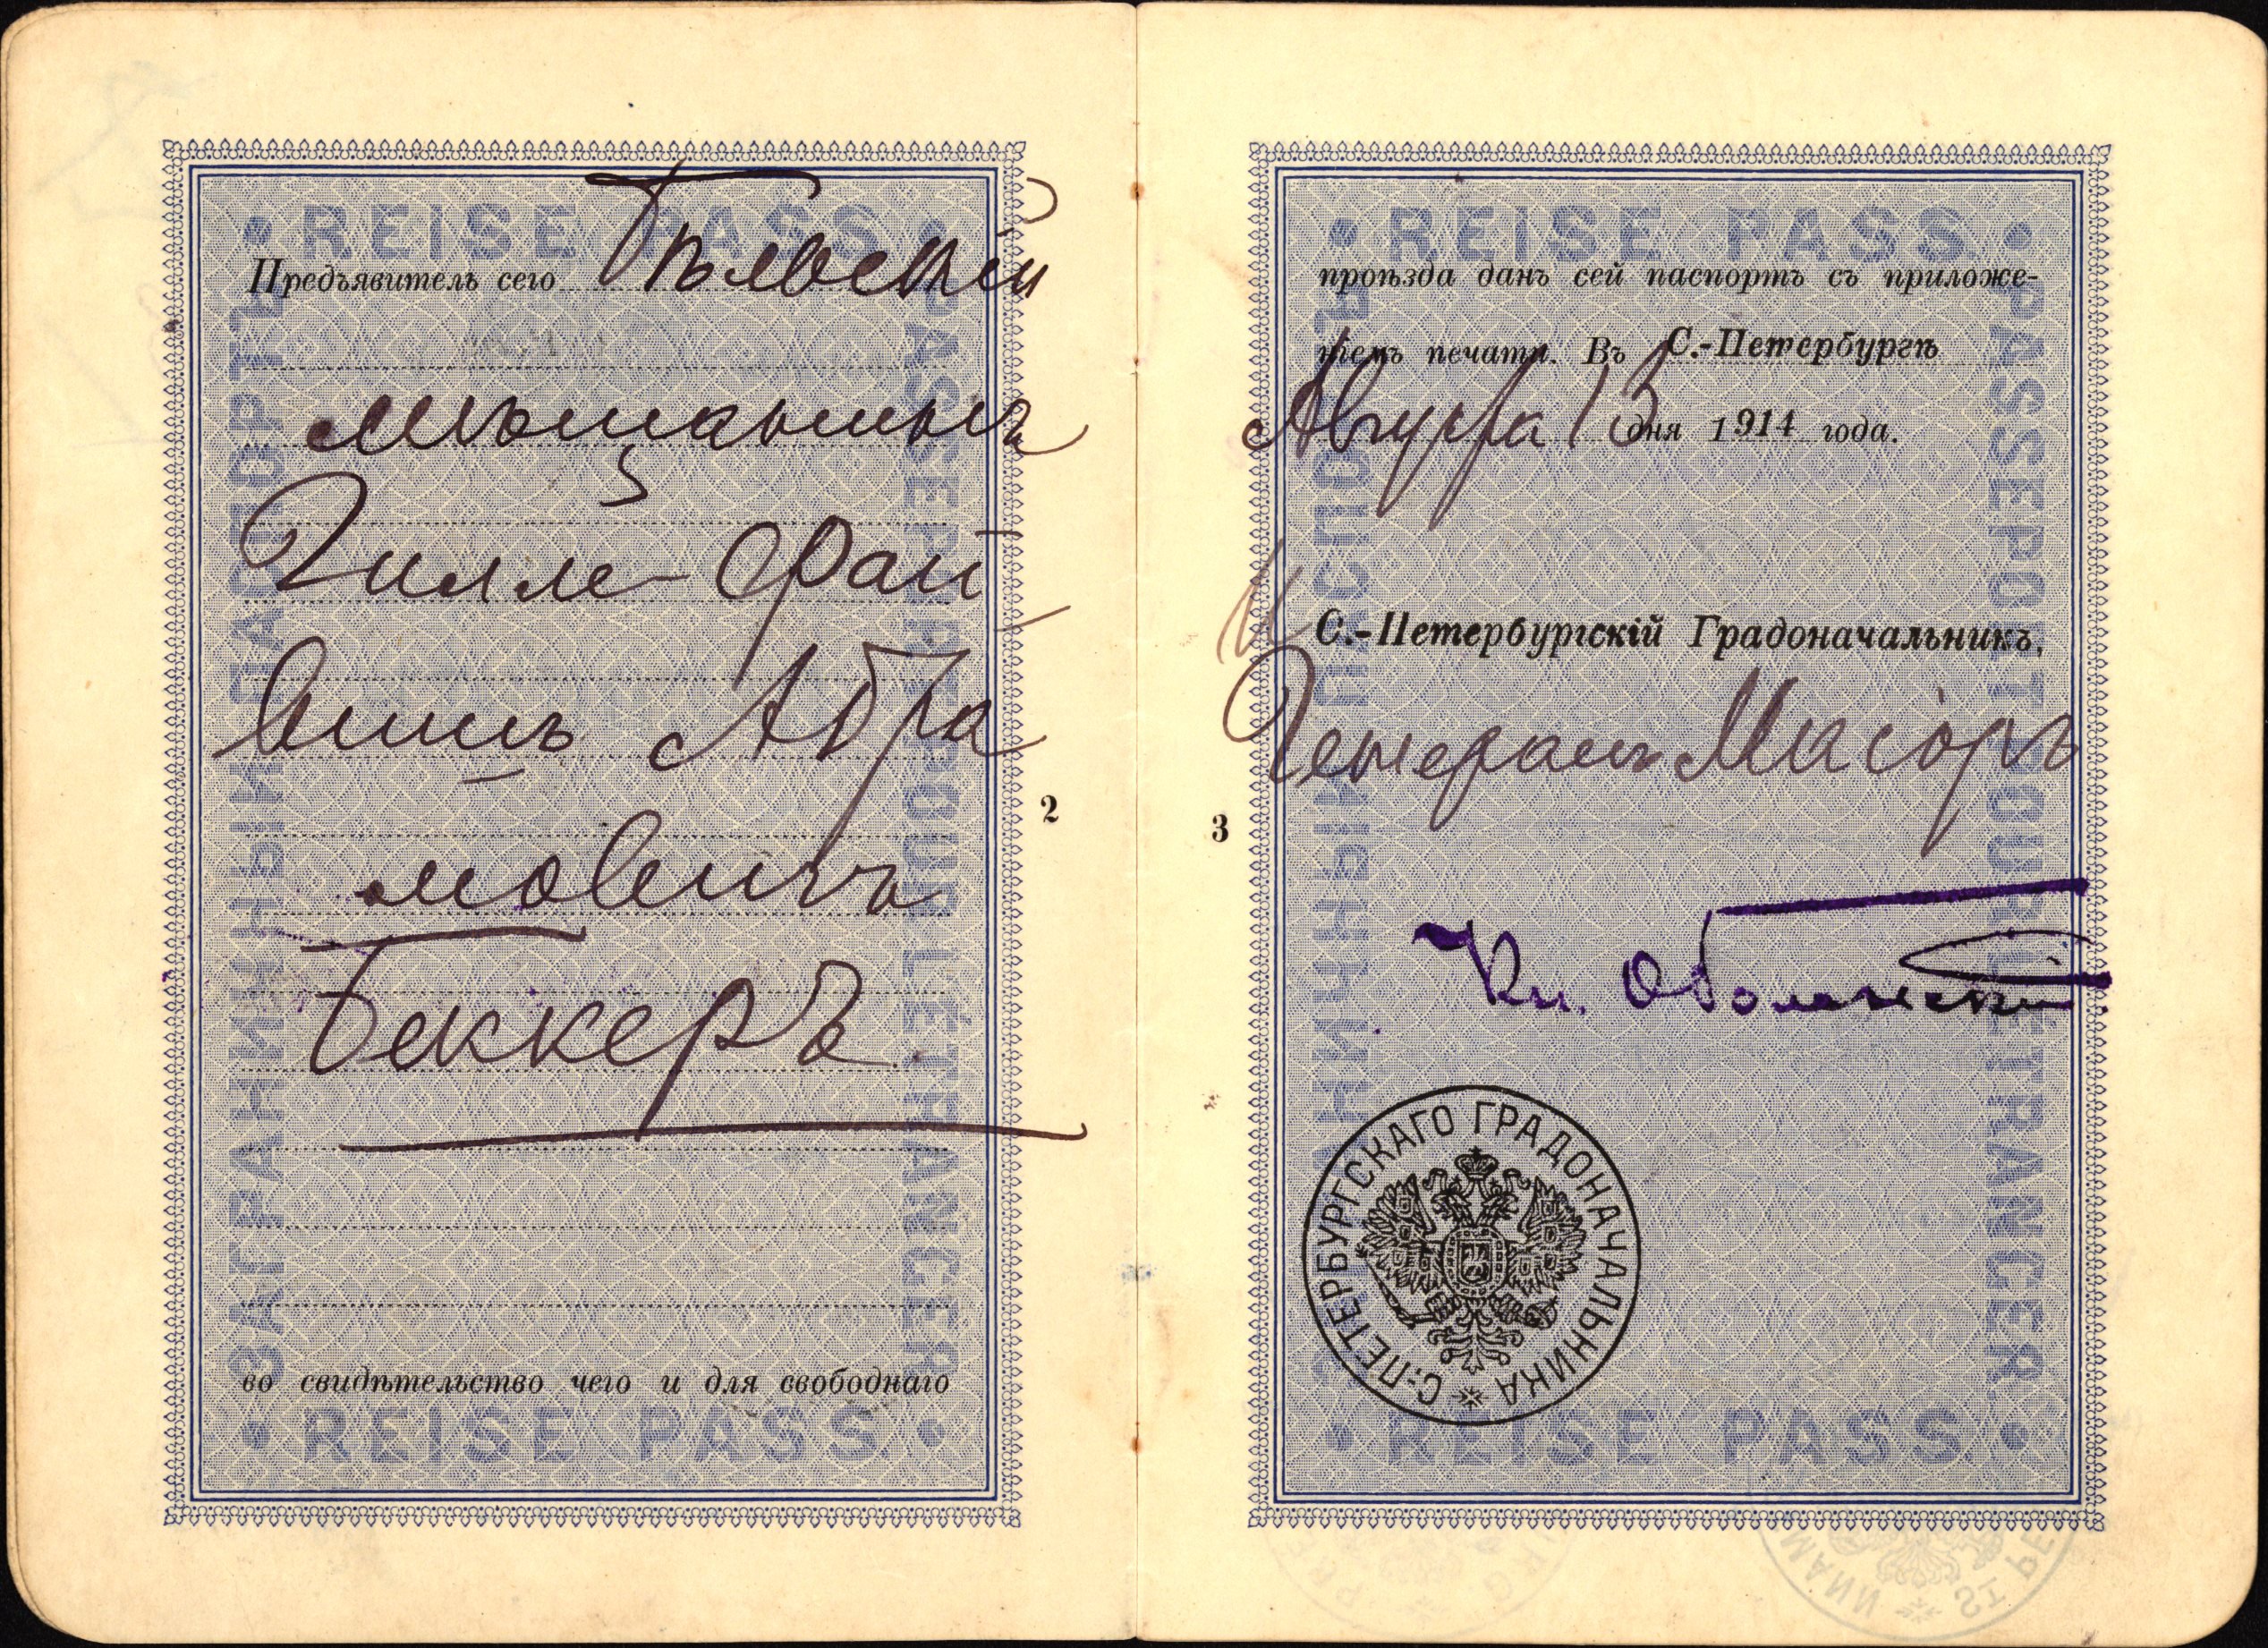 • REISE PASS •
Предъявитель сего Бѣльскій
мѣщанинъ
Гилле-Фай
вишъ Абра
мовичъ
Беккеръ
во свидѣтельство чего и для свободнаго
• REISE PASS •
ЗАГРАНИЧНЫЙ ПАСПОРТЪ
PASSEPORT POUR L'ETRANGER
2
• REISE PASS •
проѣзда данъ сей паспортъ съ приложе-
ніемъ печати. Въ С.-Петербургѣ
Августа 13 дня 1914 года.
С.-Петербургскій Градоначальникъ,
Генералъ Маіоръ
Кн. Оболенскій
С.-ПЕТЕРБУРГСКАГО ГРАДОНАЧАЛЬНИКА
• REISE PASS •
ЗАГРАНИЧНЫЙ ПАСПОРТЪ
PASSEPORT POUR L'ETRANGER
3